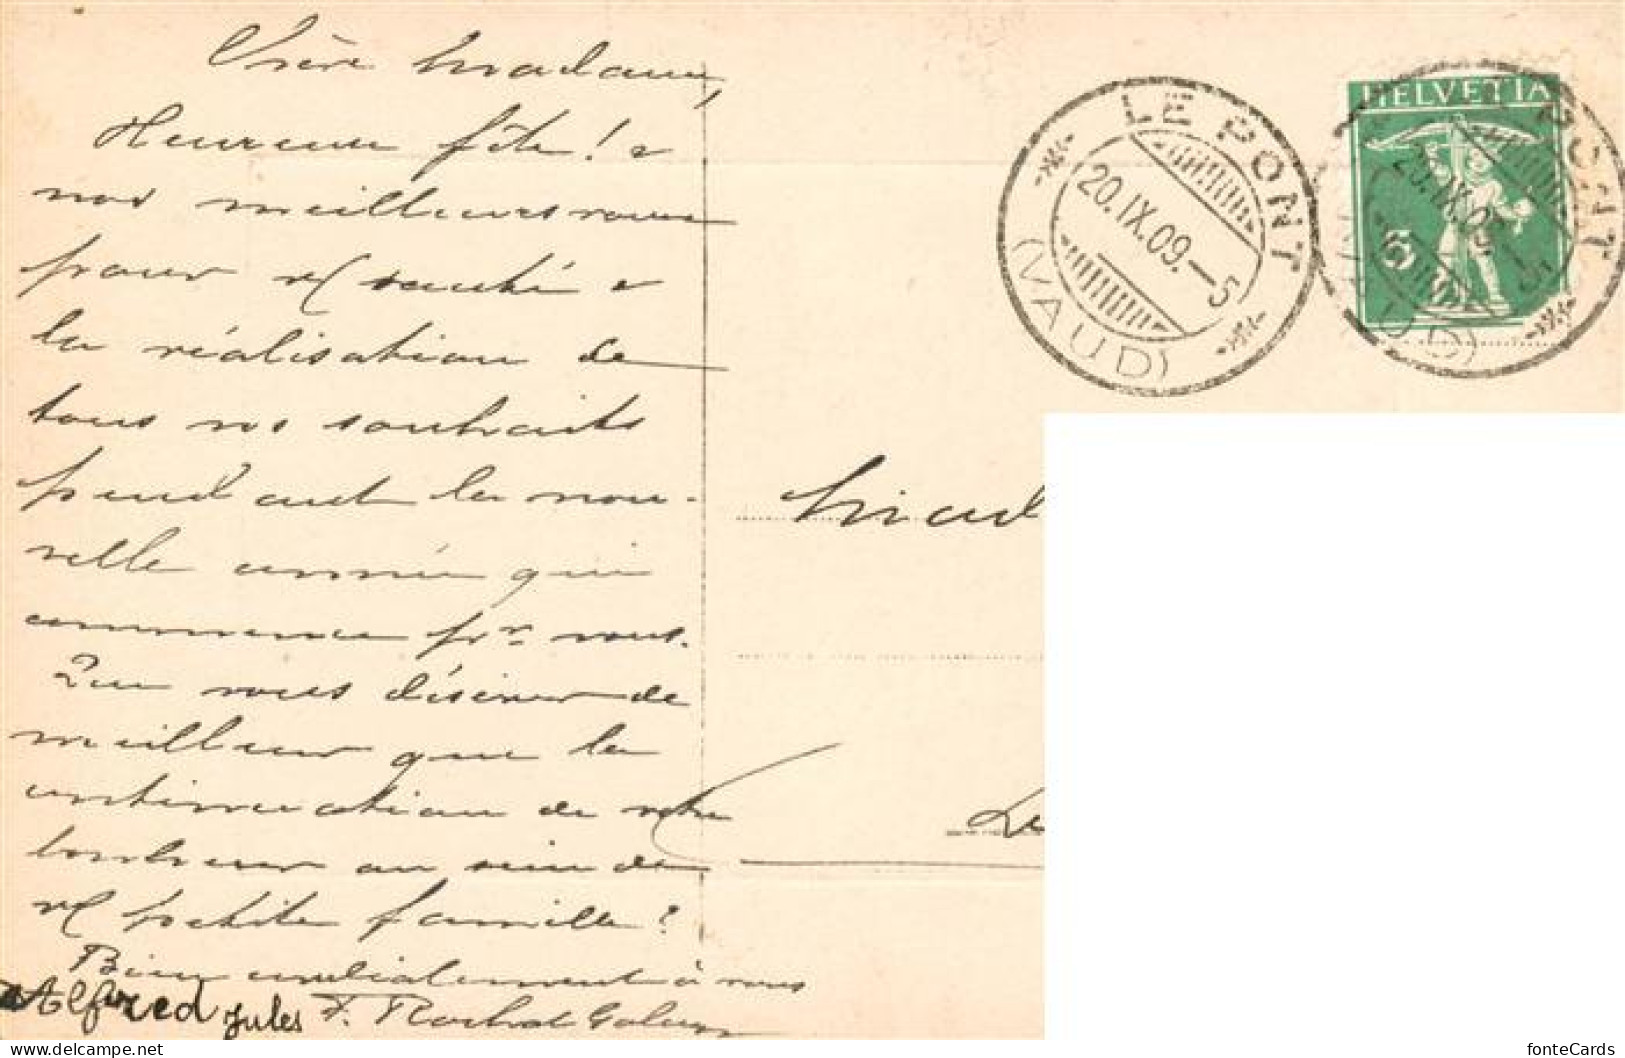 Chère Madame,
Heureuse fête! &
nos meilleurs vœux
pour vt santé &
la réalisation de
tous nos souhaits
pendant la nou-
velle année qui
commence pr vous.
Que vous désirer de
meilleur que la
continuation de votre
bonheur au sein de
vt petite famille?
Bien cordialement à vous
Alfred Jules F. Rochat
LE PONT
20.IX.09.-5
(VAUD)
HELVETIA
5
PONT
20.IX.09.-5
Mad
Le
fonteCards